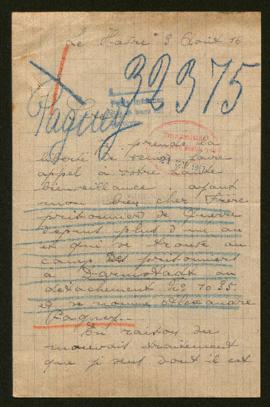 Le Havre 3 Août 16
32375
Paguez
prends la
liberté de venir faire
appel à votre
bienveillance ayant
mon bien cher Frère
prisonnier de Guerre
depuis plus d'un an
et qui se trouve au
camp des prisonniers
à Darmstadt au
détachement No 1035
et se nomme Alexandre
Paguez.
En raison du
mauvais traitement
que je sent dont il est